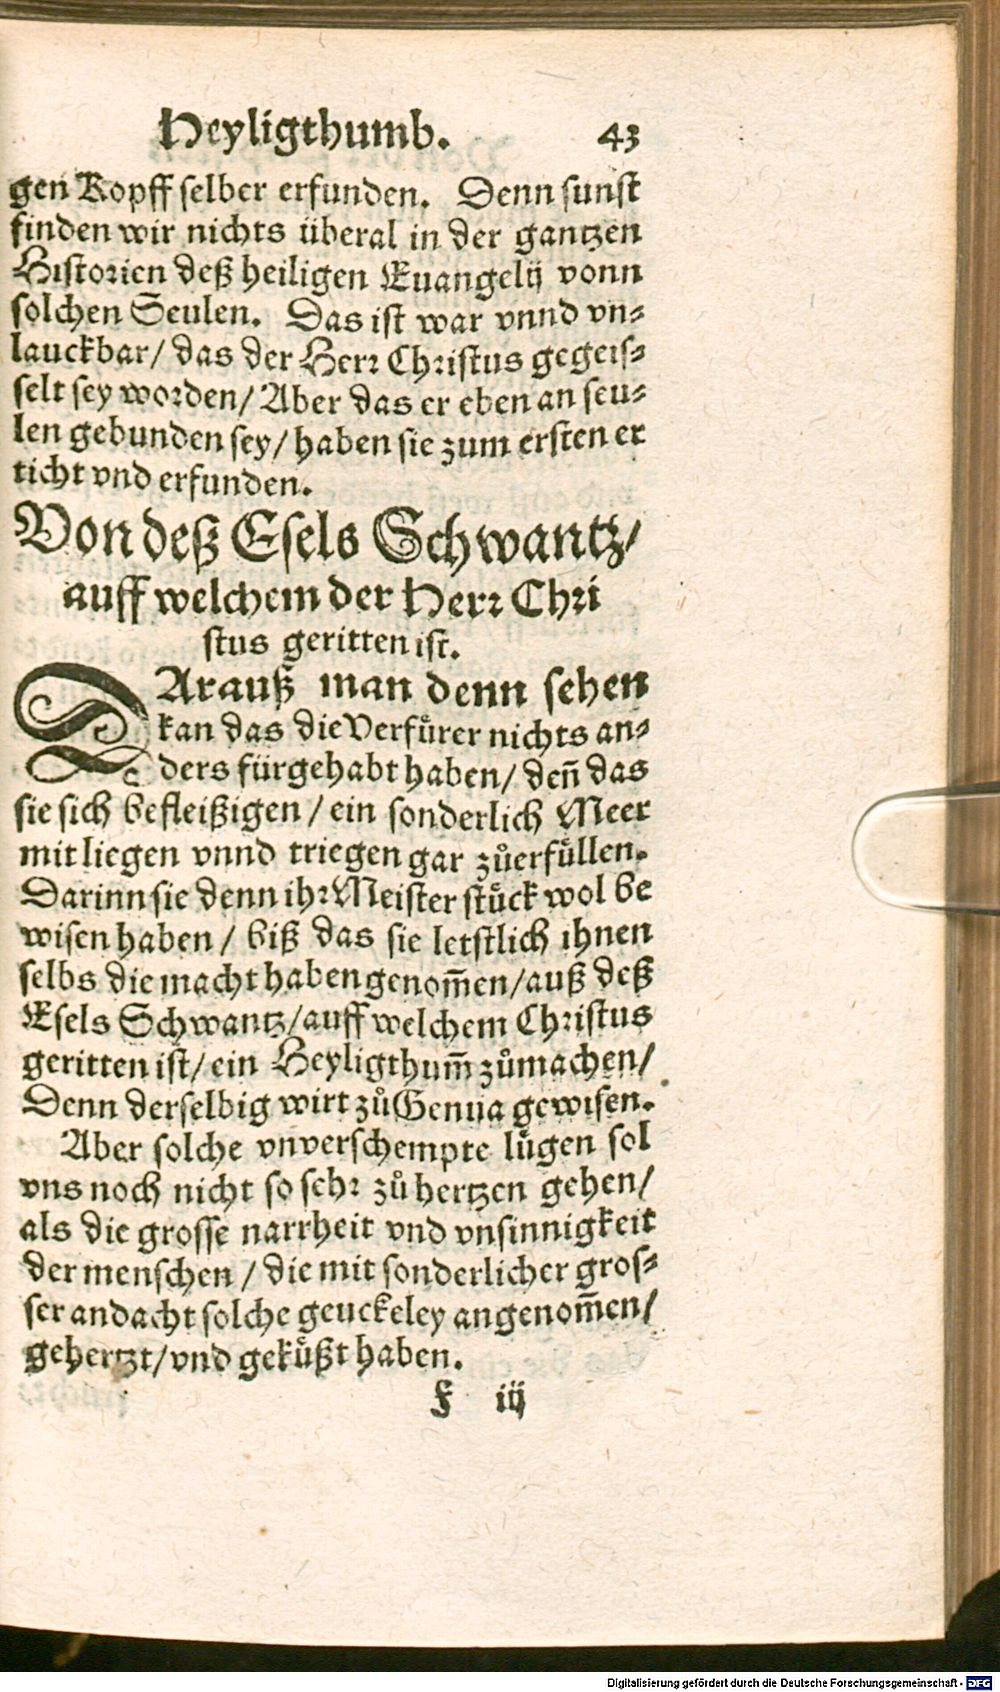 Heyligthumb. 43
gen Kopff selber erfunden. Denn sunst
finden wir nichts überal in der gantzen
Historien deß heiligen Euangelij vonn
solchen Seulen. Das ist war vnnd vn⸗
lauckbar/ das der Herr Christus gegeis⸗
selt sey worden/ Aber das er eben an seu⸗
len gebunden sey/ haben sie zum ersten er
ticht vnd erfunden.
Von deß Esels Schwantz/
auff welchem der Herr Chri
stus geritten ist.
DArauß man denn sehen
kan das die Verfuͤrer nichts an⸗
ders fürgehabt haben/ deñ das
sie sich befleißigen/ ein sonderlich Meer
mit liegen vnnd triegen gar zuͦerfuͤllen.
Darinn sie denn ihr Meister stuͤck wol be
wisen haben/ biß das sie letstlich ihnen
selbs die macht haben genom̃en/ auß deß
Esels Schwantz/ auff welchem Christus
geritten ist/ ein Heyligthum̃ zuͦmachen/
Denn derselbig wirt zuͦ Genua gewisen.
Aber solche vnverschempte luͤgen sol
vns noch nicht so sehr zuͦ hertzen gehen/
als die grosse narrheit vnd vnsinnigkeit
der menschen/ die mit sonderlicher gros⸗
ser andacht solche geuckeley angenom̃en/
gehertzt/ vnd gekuͤßt haben.
F iij
Digitalisierung gefördert durch die Deutsche Forschungsgemeinschaft - DFG